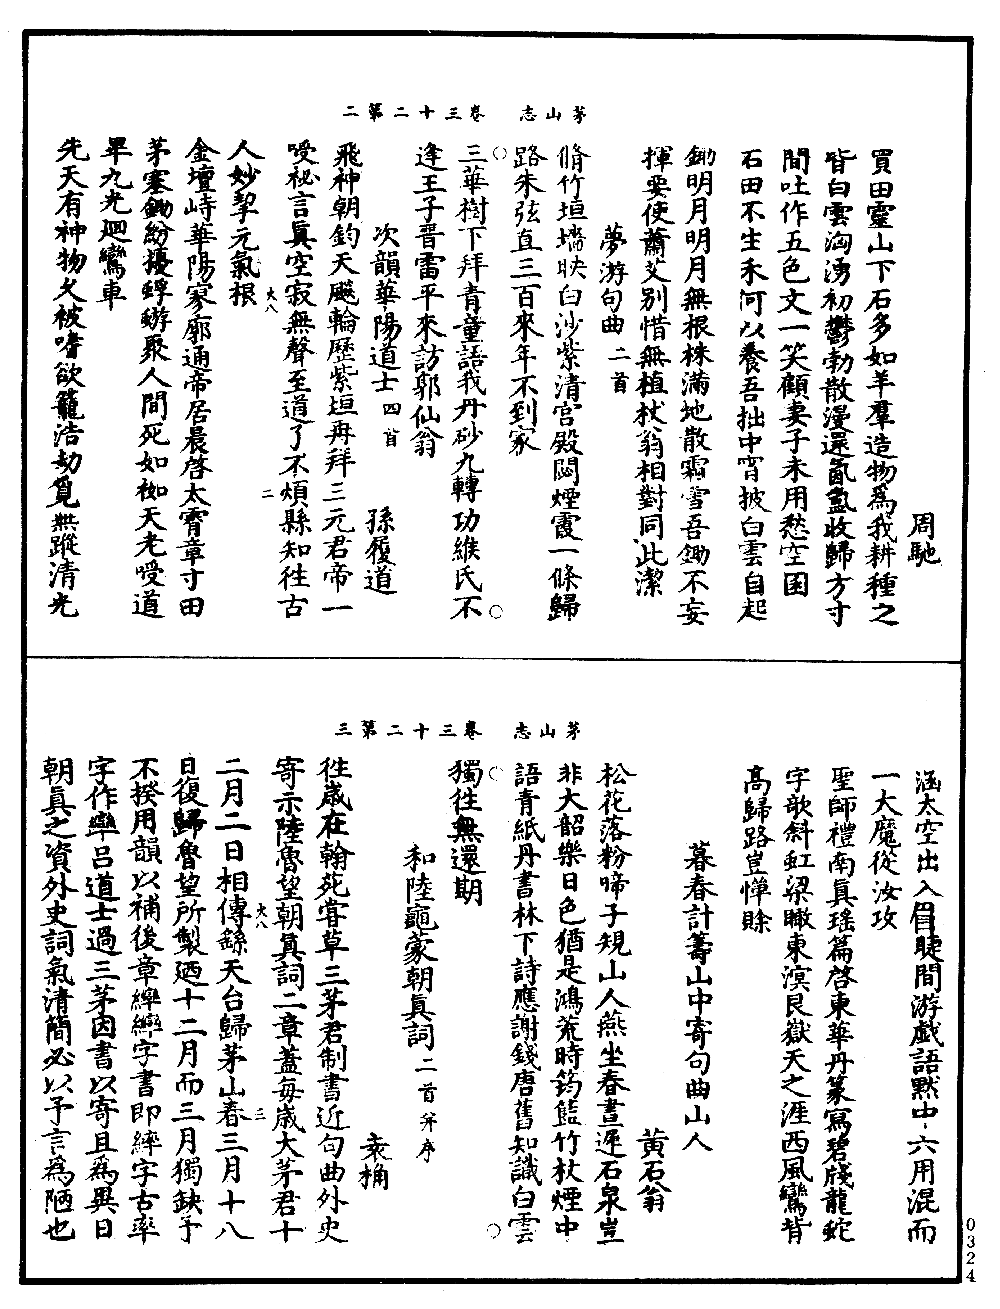 茅山志　卷三十二第二
周馳
買田靈山下石多如羊羣造物爲我耕種之
皆白雲洶湧初鬱勃散漫還氤氳收歸方寸
間吐作五色文一笑顧妻子未用愁空囷
石田不生禾何以養吾拙中宵披白雲自起
鋤明月明月無根株滿地散霜雪吾鋤不妄
揮要使蕭艾別惜無植杖翁相對同此潔
夢游句曲二首
脩竹垣墻映白沙紫清宫殿閟煙霞一條歸
路朱弦直三百來年不到家
○
三華樹下拜青童語我丹砂九轉功緱氏不
○
逢王子晉雷平來訪郭仙翁
次韻華陽道士四首　孫履道
飛神朝鈞天飚輪歷紫垣再拜三元君帝一
受祕言眞空寂無聲至道了不煩縣知徃古
人妙挈元氣根
大八　二
金壇峙華陽寥廓通帝居晨啓太霄章寸田
茅塞鋤紛擾蜉蝣聚人間死如樹天老受道
畢九光廻鸞車
先天有神物久被嗜欲籠浩劫覓無蹤清光
茅山志　卷三十二第三
涵太空出入眉睫間游戲語默中六用混而
一大魔從汝攻
聖師禮南眞瑤篇啓東華丹篆寫碧牋龍蛇
字欹斜虹梁瞰東溟艮嶽天之涯西風鸞背
高歸路豈憚賒
暮春計籌山中寄句曲山人
黄石翁
松花落粉啼子規山人燕坐春晝遲石泉豈
非大韶樂日色猶是鴻荒時筠籃竹杖煙中
語青紙丹書林下詩應謝錢唐舊知識白雲
○　○
獨徃無還期
和陸龜蒙朝眞詞二首并序
袁桷
徃歲在翰苑嘗草三茅君制書近句曲外史
寄示陸魯望朝眞詞二章蓋每歲大茅君十
大八　三
二月二日相傳繇天台歸茅山春三月十八
日復歸魯望所製廼十二月而三月獨缺予
不揆用韻以補後章繂繂字書即綷字古率
字作㘘呂道士過三茅因書以寄且爲異日
朝眞之資外史詞氣清簡必以予言爲陋也
0324